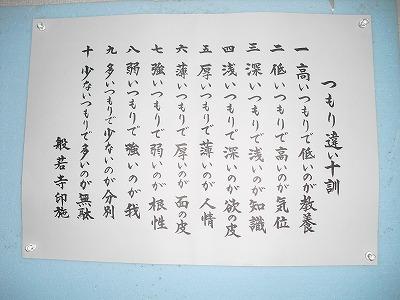 つもり違い十訓
一 高いつもりで低いのが教養
二 低いつもりで高いのが気位
三 深いつもりで浅いのが知識
四 浅いつもりで深いのが欲の皮
五 厚いつもりで薄いのが人情
六 薄いつもりで厚いのが面の皮
七 強いつもりで弱いのが根性
八 弱いつもりで強いのが我
九 多いつもりで少ないのが分別
十 少ないつもりで多いのが無駄
般若寺印施